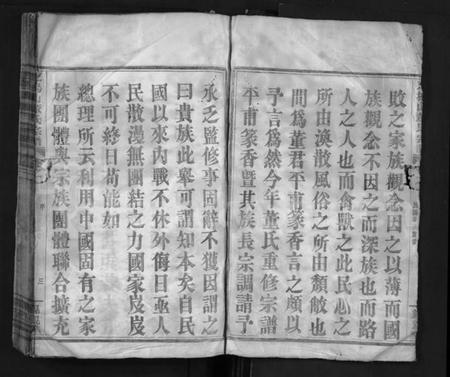 敗之家族觀念因之以薄而國
族觀念不因之而深族也而路
人之人也而禽獸之此民心之
所由渙散風俗之所由頹敝也
間為董君平甫篆香言之頗以
予言為然今年董氏重修宗譜
平甫篆香暨其族長宗調請予
承乏監修事固辭不獲因謂之
曰貴族此舉可謂知本矣自民
國以來內戰不休外侮日亟人
民散漫無團結之力國家岌岌
不可終日苟能如
總理所云利用中國固有之家
族團體與宗族團體聯合擴充
三